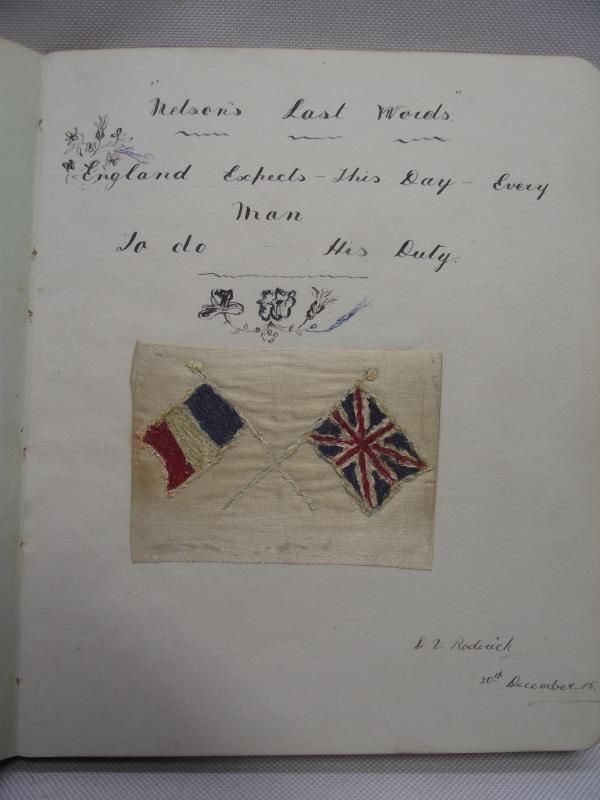 "Nelson's Last Words"
England Expects - This Day - Every
Man
To do - His Duty.
D V. Roderick
30th December-15.